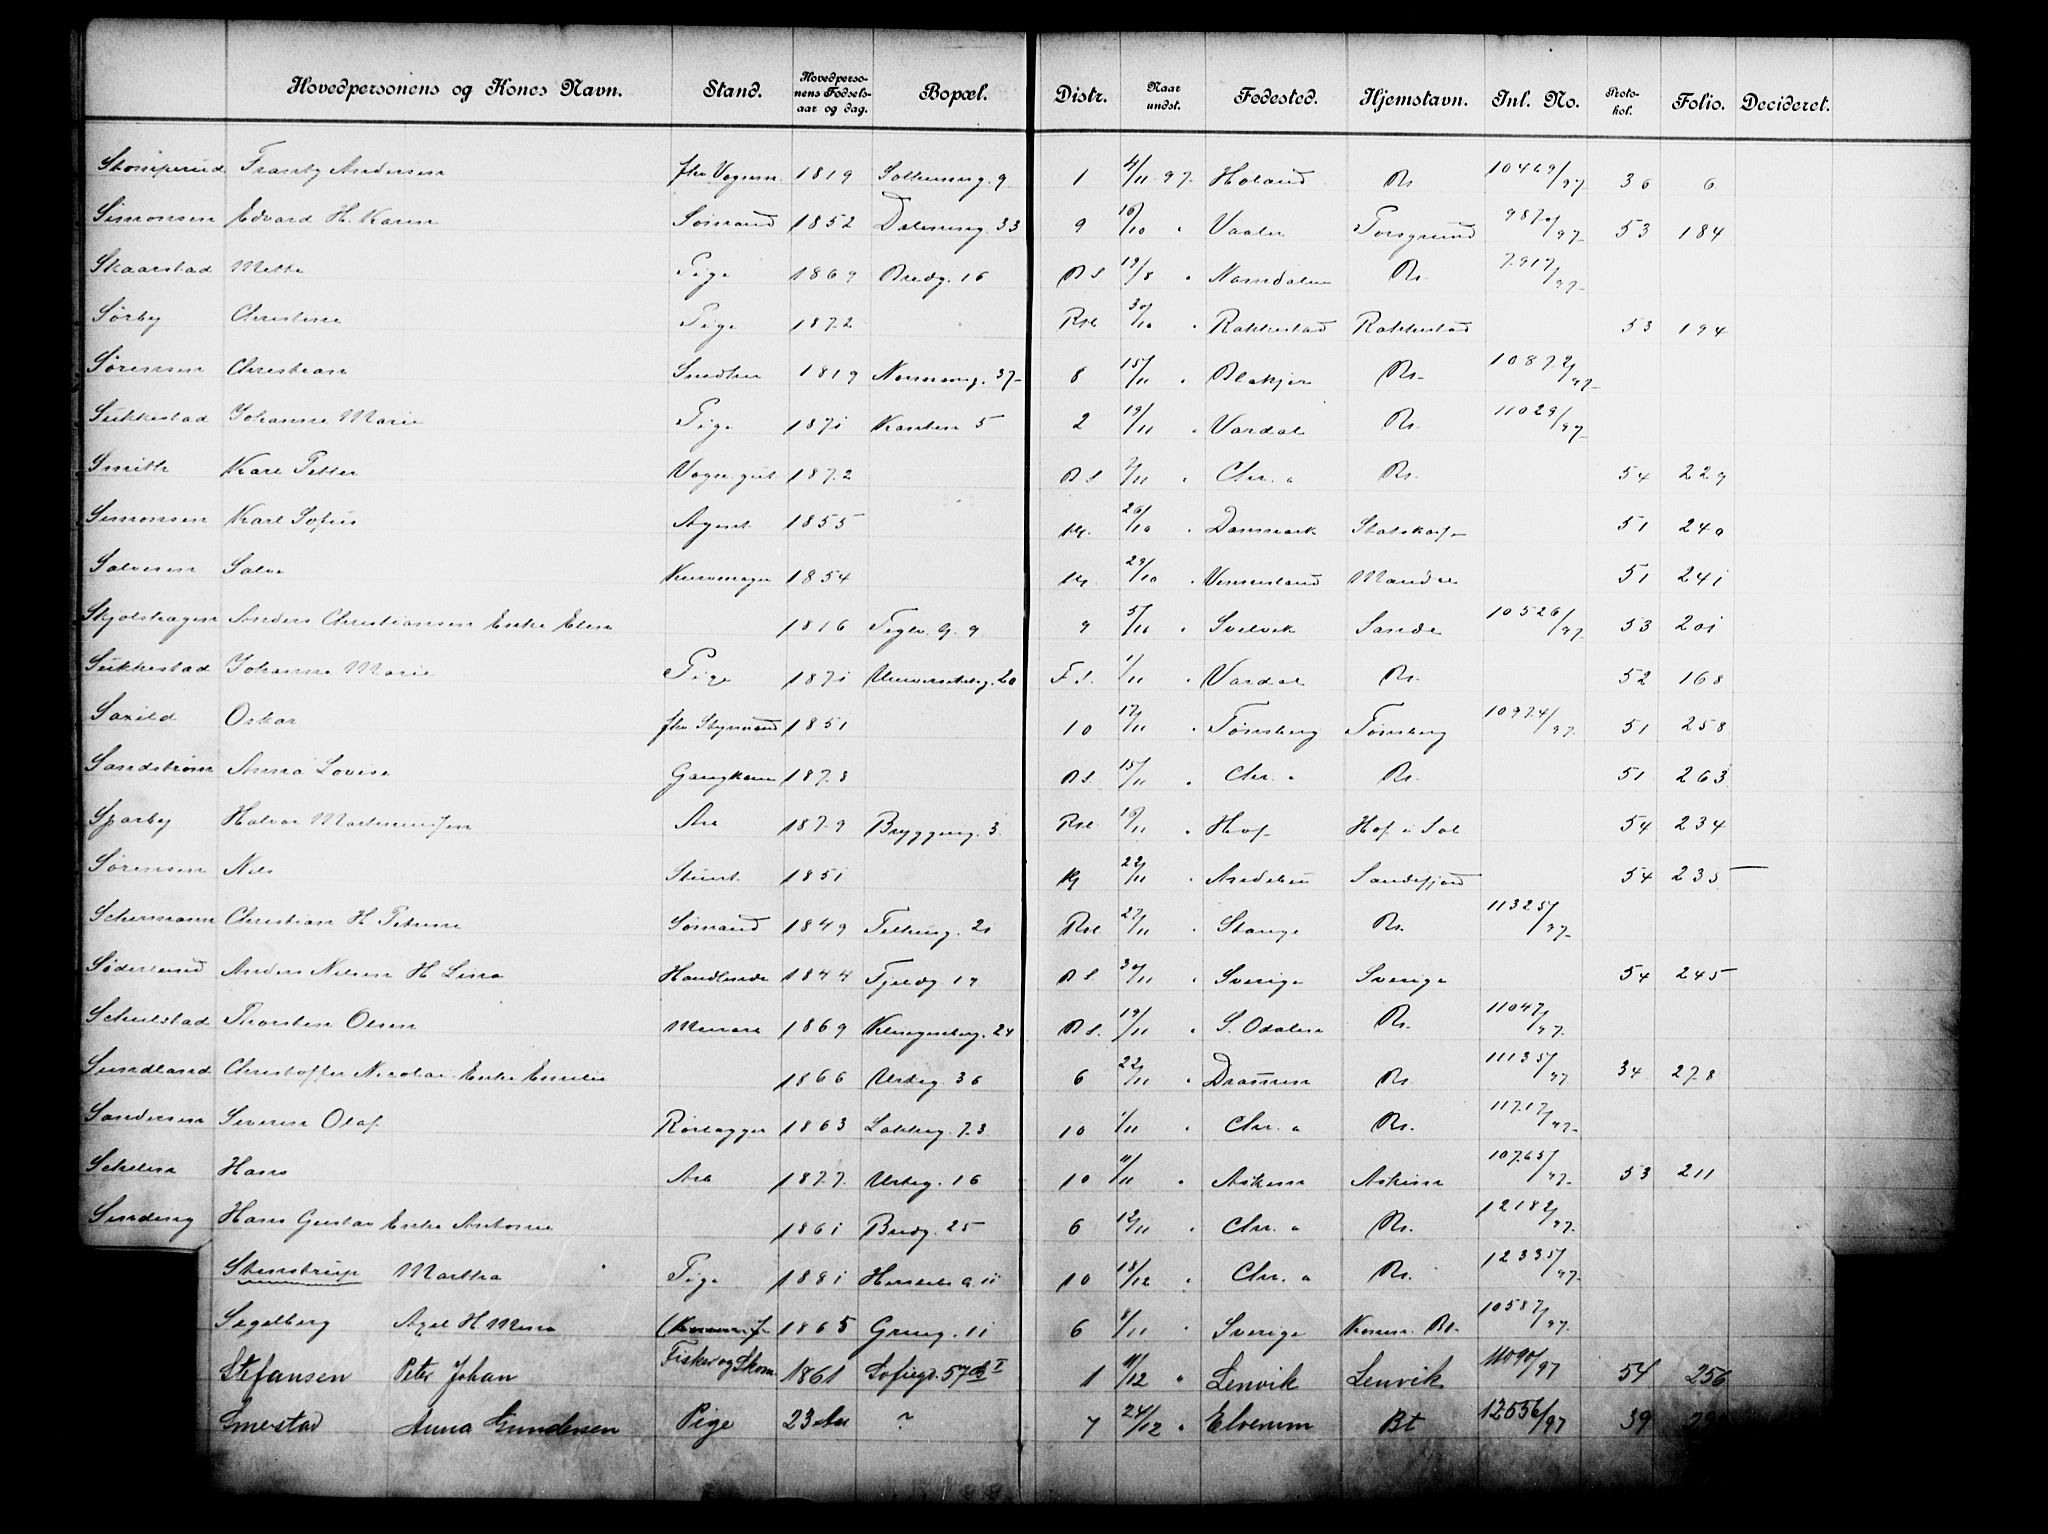 Hovedpersonens og Kones Navn. Stand. Hovedperso-nens Fødsels-aar og dag. Bopæl. Distr. Naar undst. Fødested. Hjemstavn. Inl. No. Proto-kol. Folio. Decideret.
Stomperud Frants Andersen fhv Vognm. 1819 9 1 4/11 97 Høland Br. 10469/97 36 6
Simonsen Edvard H. Karen Sømand 1852 Dalsveieng. 33 9 16/10 " Vaaler Porsgrund 53 184
Skaarstad Mette Pige 1869 Bredg. 16 BS 19/8 " Namdalen Br. 7917/97
Sørby Christine Pige 1872 Rst. 30/10 " Rakkestad Rakkestad 53 194
Sørensen Christian Snedker 1819 Normanng. 37 8 15/11 " Blakjer Br. 10872/97
Sukkestad Johanne Marie Pige 1871 Kanten 5 2 19/11 " Vardal Br. 11029/97
Smith Karl Petter Vogn.gut 1872 BS /11 " Chr.a Br. 54 229
Simonsen Karl Sofus Agent 1855 Kg. 26/10 " Danmark 51 240
Salvesen Salve Kurvmager 1854 Kg. 29/10 " Vennesland Mandal 51 241
Skjolshagen Anders Christiansen Enke Elen 1816 Teglv. g. 9 9 5/11 " Svelvik Sande 10526/97 53 201
Sukkestad Johanne Marie Pige 1871 Universitetsg. 20 F.S. 1/11 " Vardal Br. 52 168
Saxild Oskar fhv Styrmand 1851 10 17/11 " Tønsberg Tønsberg 10974/97 51 258
Sandstrøm Anna Lovise Gangkone 1873 BS. 15/11 " Chr.a Br. 51 263
Sparby Halvor Martiniussen Arb 1879 Bryggerig. 3 Rst. 16/11 " Hof Hof i Sol 54 234
Sørensen Nils Stuert 1851 Kg 22/11 " Andebu Sandefjord 54 235
Schermann Christian H. Petrine Sømand 1849 Telthusg. 21 Rst. 27/11 " Stange Br. 11325/97
Søderlund Anders Nilsen H Lena Handlende 1844 Fjeldg 17 BS. 30/11 " Sverige Sverige 54 245
Schulstad Thorsten Olsen Murarb 1869 Klingenberg. 24 BS. 19/11 " S. Odalen Br. 11047/97
Sundland Christoffer Nicolai Enke Emilie 1866 Urteg. 36 6 22/11 " Drammen Br. 11135/97 34 278
Sandersen Severin Olaf Rørlægger 1863 Lakkeg. 73 10 1/11 " Chr.a Br. 11717/97
Schelin Hans Arb 1877 Urteg. 16 10 11/11 " Askim Askim 10765/97 53 211
Sinding Hans Gustav Enke Antonie 1861 Bredg. 25 6 12/11 " Chr.a Br. 12182/97
Stenstrup Martha Pige 1881 Herslebs g. 11 10 18/12 " Chr.a Br. 12335/97
Segelberg Axel H Mina 1865 Grueg. 11 6 8/11 " Sverige Komm. Br. 10587/97
Stefansen Peter Johan Fisker og Skom. 1861 Sofiegd. 57 I 1 11/12 " Lenvik Lenvik 11090/97 54 256
Smestad Anna Gundersen Pige 23 Aar ? 7 24/12 " Elverum Bt 12556/97 39